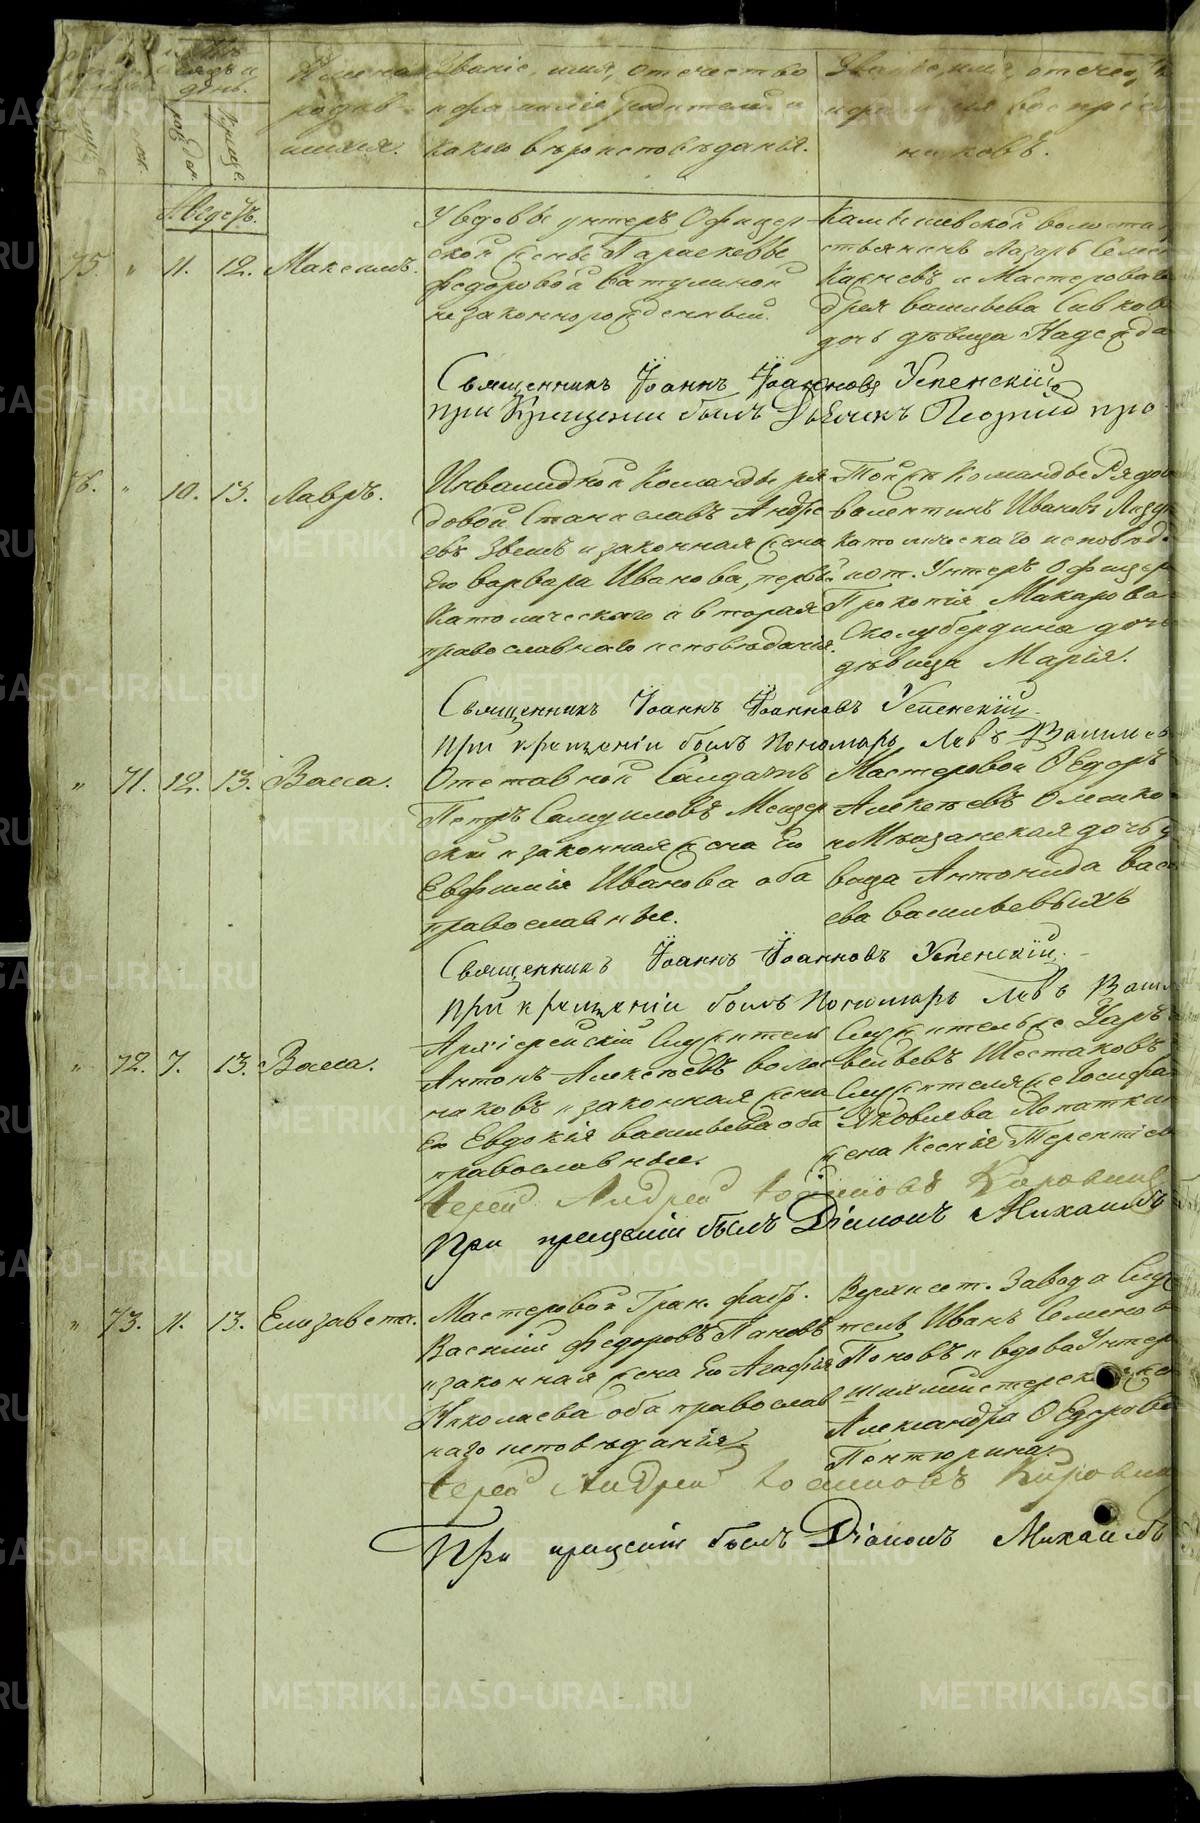 Имена родив-
шихся.
Званіе, имя, отчество
и фамилія родителей и
какого вѣроисповѣданія.
Званіе, имя, отчес
и фамилія воспріем
никовъ.
Августъ.
75. " 11. 12. Максимъ.
У вдовы унтеръ Офицер-
ской жены Параскевы
Федоровой Ватулиной
незаконнорожденный.
Камышевской волости
стьянинъ Лазарь Семен
Качневъ и Мастероваго
дрея Васильева Сивков
дочь дѣвица Надежда
Священникъ Іоаннъ Іоанновъ Успенскій
При Крещеніи былъ Дьячекъ Георгій про
76. " 10. 13. Лавръ.
Инвалидной Команды ря
довой Станиславъ Андре
евъ Звешъ и законная жена
Его Варвара Иванова, первый
Католическаго а вторая
православнаго исповѣданія.
Той же Команды Рядов
Валентинъ Ивановъ
Католическаго исповѣд.
и от. Унтеръ Офицер
Прокопія Макарова
дочь
дѣвица Марія.
Священникъ Іоаннъ Іоанновъ Успенскій.
при крещеніи былъ Пономарь Левъ Васильев
" 71. 12. 13. Васса.
Отставной Солдатъ
Петръ Самуиловъ Мещер
скій и законная жена Его
Евфимія Иванова оба
православные.
Мастеровой Ѳедоръ
Алексѣевъ
и Мѣщанская дочь дѣ
вица Антонида Васи
ева Васильевыхъ
Священникъ Іоаннъ Іоанновъ Успенскій.
при крещеніи былъ Пономарь Левъ Васил
" 72. 7. 13. Васса.
Архіерейскій Служитель
Антонъ Алексѣевъ Воло
никовъ и законная жена
Его Евдокія Васильева оба
православные.
Служитель же Уаръ
вѣевъ Шестаковъ
Служителя же Іосифа
Яковлева Лопатки
жена Ксенія Терентіев
Іерей Андрей Іоанновъ Коровин
При крещеніи былъ Діаконъ Михаилъ
" 73. 11. 13. Елизавета.
Мастеровой Гран. фабр.
Василій Федоровъ Пановъ
и законная жена Его Агафія
Николаева оба православ
наго исповѣданія.
Верхисет. Завода Служ
тель Иванъ Семенов
Поповъ и вдова Унтеръ
шихмейстерская жена
Александра Ѳедорова
Пентюрина.
Іерей Андрей Іоанновъ Коровин
При крещеніи былъ Діаконъ Михаилъ
METRIKI.GASO-URAL.RU